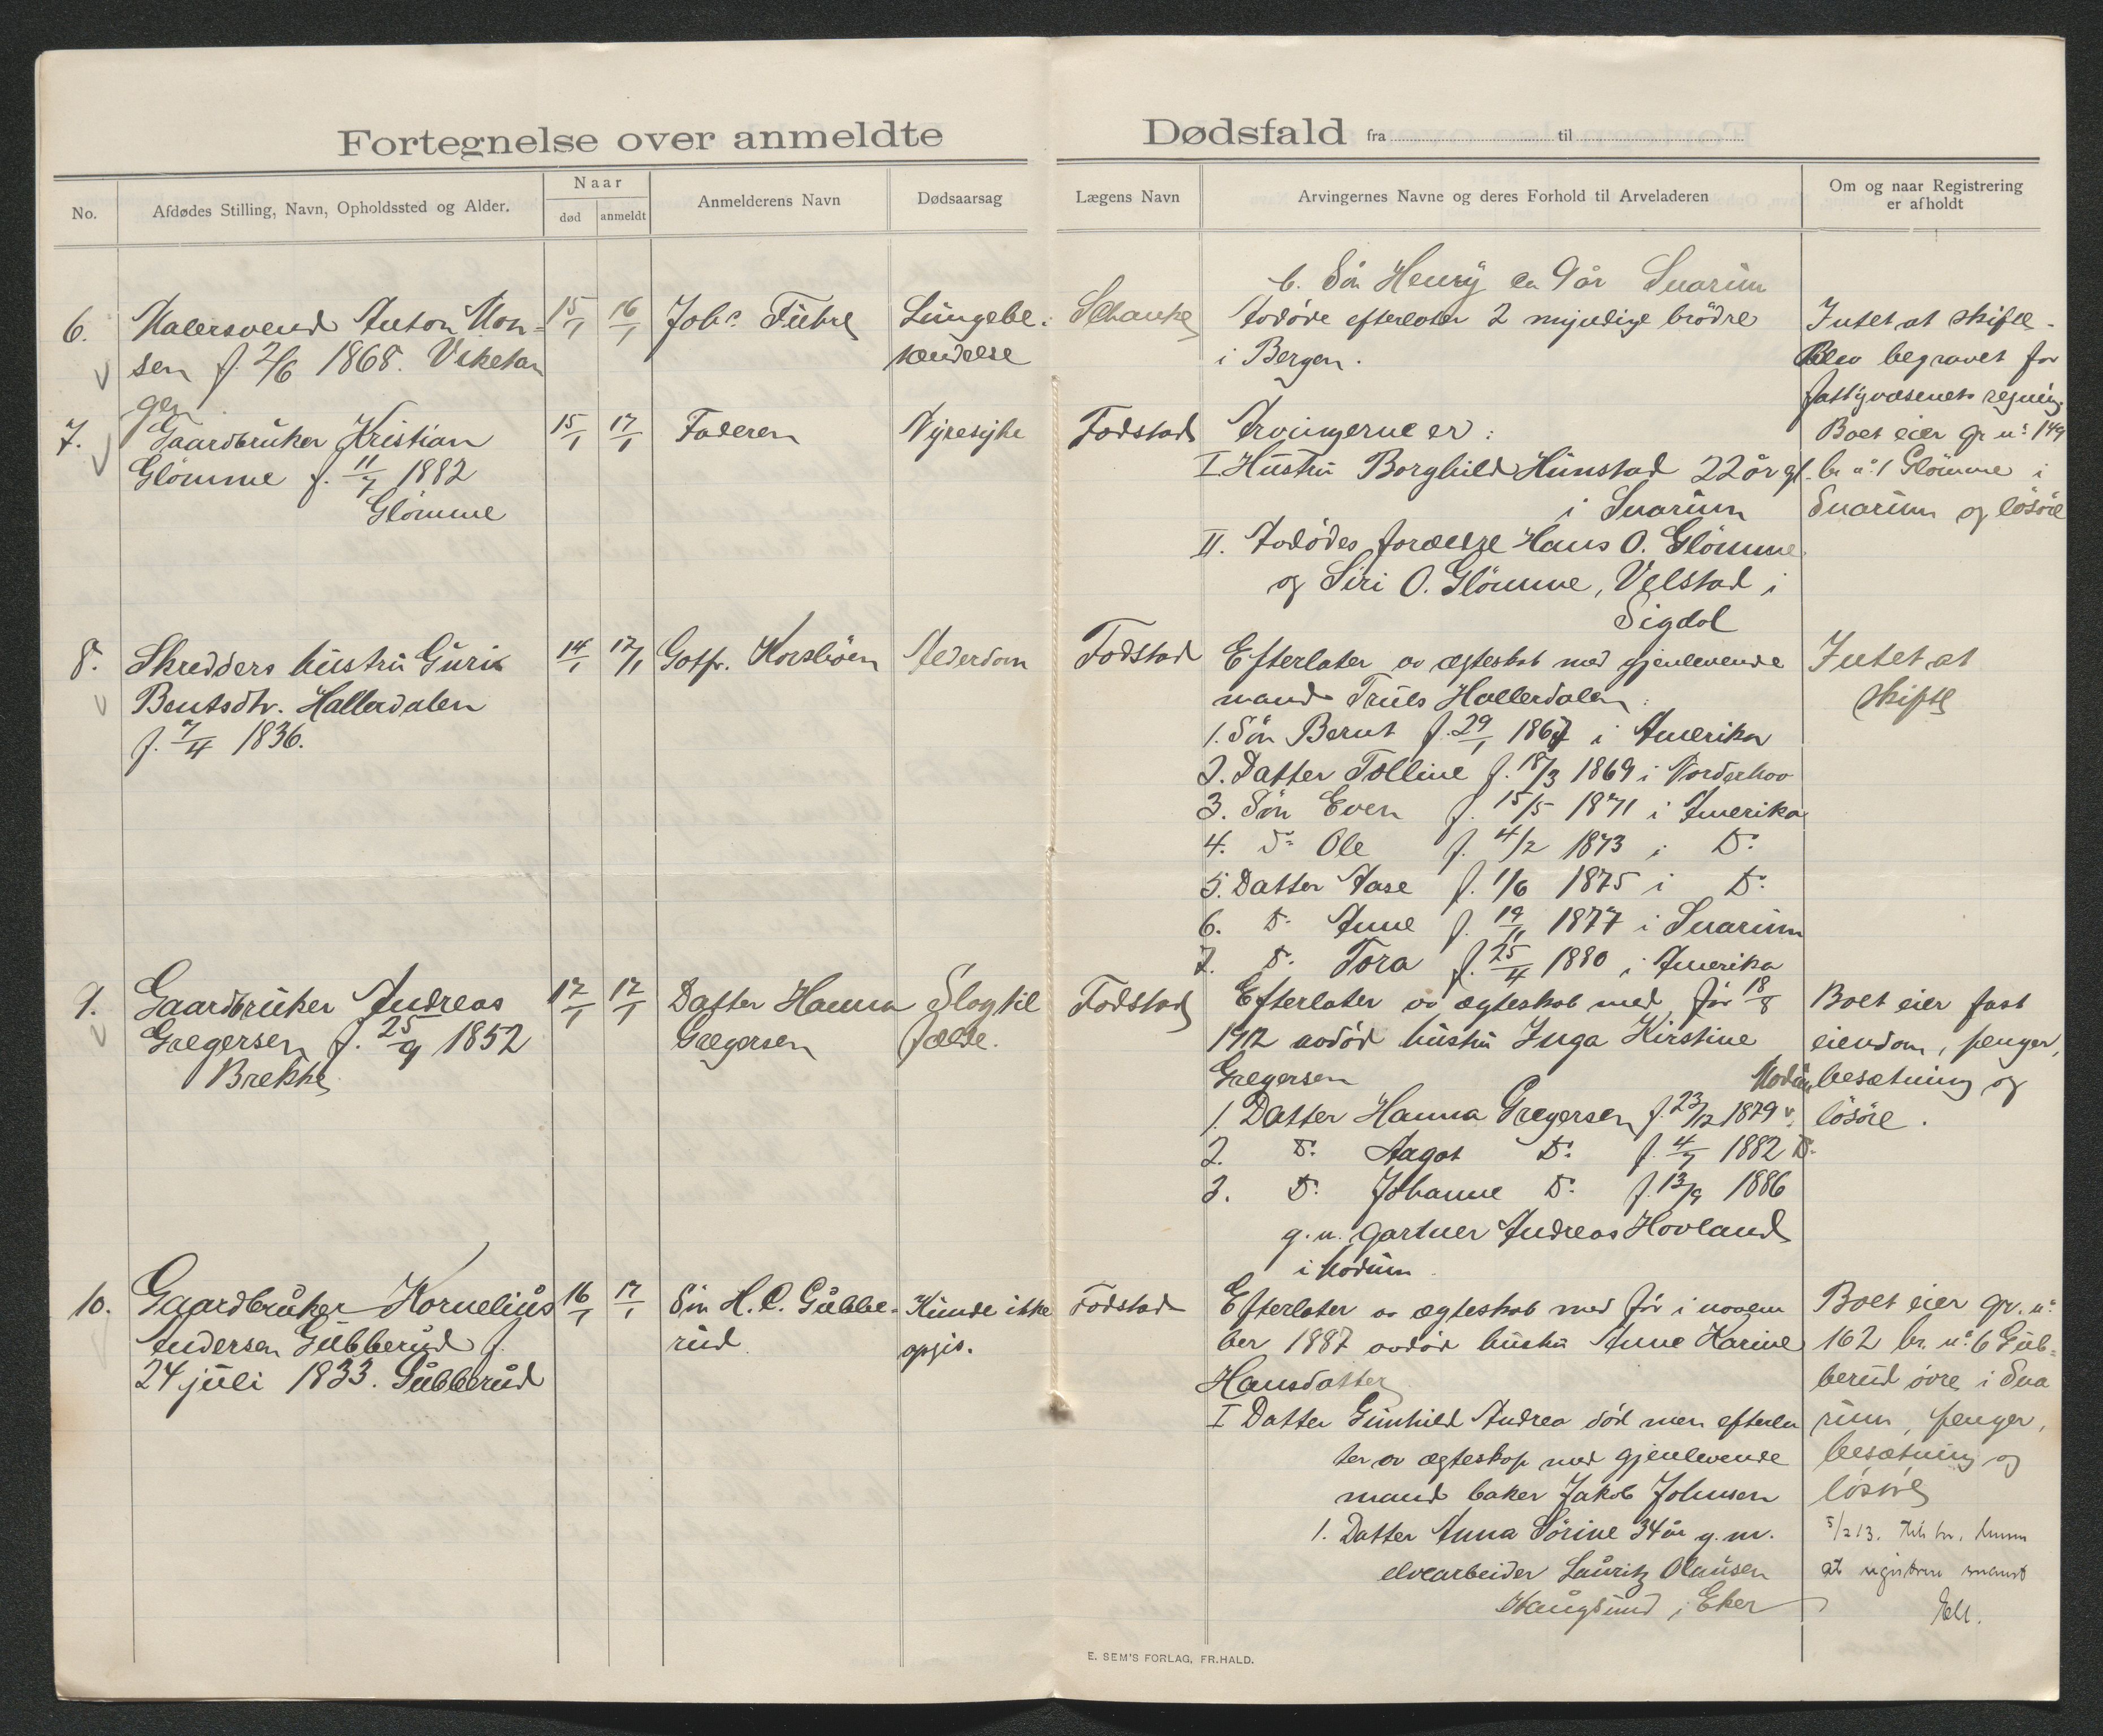 Fortegnelse over anmeldte Dødsfald fra til
No.
Afdødes Stilling, Navn, Opholdssted og Alder.
Naar
død
anmeldt
Anmelderens Navn
Dødsaarsag
Lægens Navn
Arvingernes Navne og deres Forhold til Arveladeren
Om og naar Registrering
er afholdt
b. Sön Henry ca 9 år Snarum
6.
Malersvend Anton Mon-
sen f. 2/6 1868. Viketan
gen
15/1
16/1
Johs. Fuhre
Lungebe-
tændelse
Schanke
Avdöde efterlater 2 myndige brödre
i Bergen.
Intet at skifte.
Blev begravet for
fattigvæsenets regning.
7.
Gaardbruker Kristian
Glömme f. 11/7 1882
Glömme
15/1
17/1
Faderen
Nyresyke
Fodstad
Arvingerne er:
I. Hustru Borghild Hunstad 22 år gl.
i Snarum
II. Avdödes forældre Hans O. Glömme
og Siri O. Glömme, Velstad i
Sigdal
Boet eier gr. no. 149
br. no. 1 Glömme i
Snarum og lösöre
8.
Skredders hustru Guri
Bentsdtr. Hallerdalen
f. 7/4 1836.
14/1
17/1
Gotfr. Korsböen
Alderdom
Fodstad
Efterlater av ægteskab med gjenlevende
mand Truls Hallerdalen:
1. Sön Bernt f. 29/1 1867 i Amerika
2. Datter Tolline f. 18/3 1869 i Norderhov
3. Sön Even f. 15/5 1871 i Amerika
4. Do Ole f. 4/2 1873 i Do.
5. Datter Aase f. 1/6 1875 i Do.
6. Do. Anne f. 19/11 1877 i Snarum
7. Do. Tora f. 25/4 1880 i Amerika
Intet at
skifte
9.
Gaardbruker Andreas
Gregersen f. 25/9 1852
Brekke
17/1
17/1
Datter Hanna
Gregersen
Slagtil
fælde.
Fodstad
Efterlater av ægteskab med för 18/8
1912 avdöd hustru Inga Kirstine
Gregersen
Modum
1. Datter Hanna Gregersen f. 23/12 1879
2. Do. Aagot Do. f. 4/7 1882 Do.
3. Do. Johanne Do. f. 13/9 1886
g. m. gartner Andreas Hovland
i Modum
Boet eier fast
eiendom, penger,
besætning og
lösöre.
10.
Gaardbruker Kornelius
Andersen Gubberud f.
24 juli 1833. Gubberud
16/1
17/1
Sön H. C. Gubbe-
rud
Kunde ikke
opgis.
Fodstad
Efterlater av ægteskab med för i novem
ber 1887 avdöd hustru Anne Karine
Hansdatter
I Datter Gunhild Andrea död men efterla
ter av ægteskap med gjenlevende
mand baker Jakob Johnsen
1. Datter Anna Sörine 34 år g. m.
elvearbeider Lauritz Olausen
Haugsund i Eker
Boet eier gr. no.
162 br. no. 6 Gub-
berud övre i Sna
rum, penger,
besætning og
lösöre
5/2 13.
at registrere snarest
E. SEM'S FORLAG, FR.HALD.